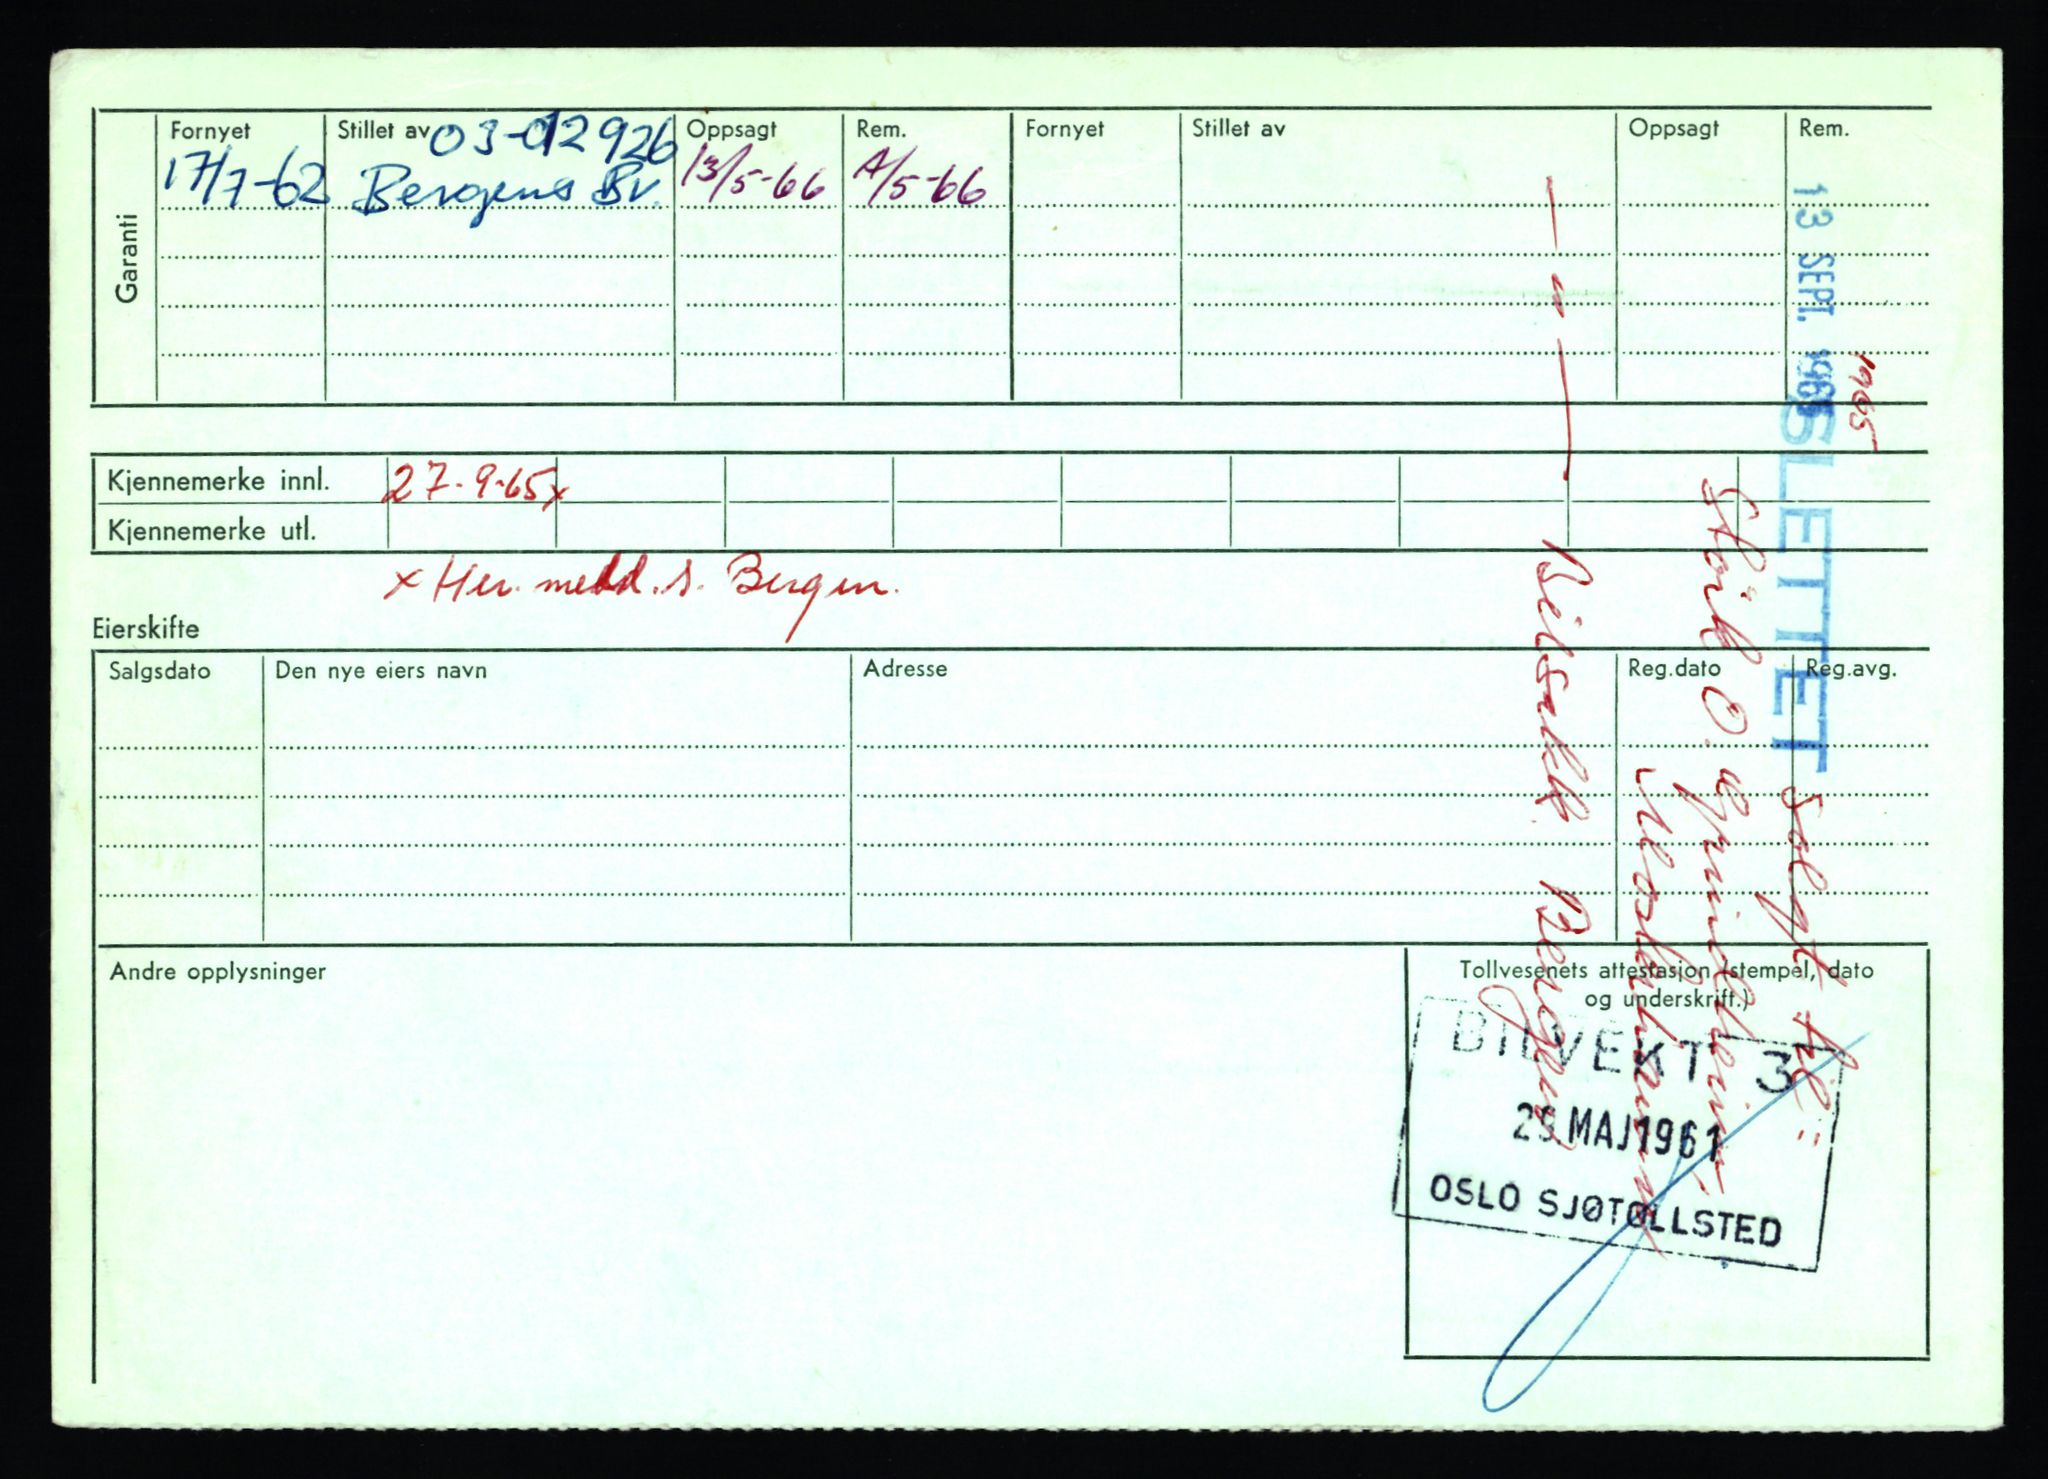 Garanti
Fornyet Stillet av 03-012926 Oppsagt Rem. Fornyet Stillet av Oppsagt Rem.
17/7-62 Bergens Bv. 13/5-66 /5-66
Kjennemerke innl. 27-9-65x
Kjennemerke utl.
x Her. medd. s. Bergen.
Eierskifte
Salgsdato Den nye eiers navn Adresse Reg.dato Reg.avg.
Andre opplysninger
Tollvesenets attestasjon (stempel, dato
og underskrift.)
BILVEKT 3
29 MAJ 1961
OSLO SJØTOLLSTED
1965
13 SEPT. 1965 SLETTET
Solgt til:
O.
Bilsakk. Bergen
— " —